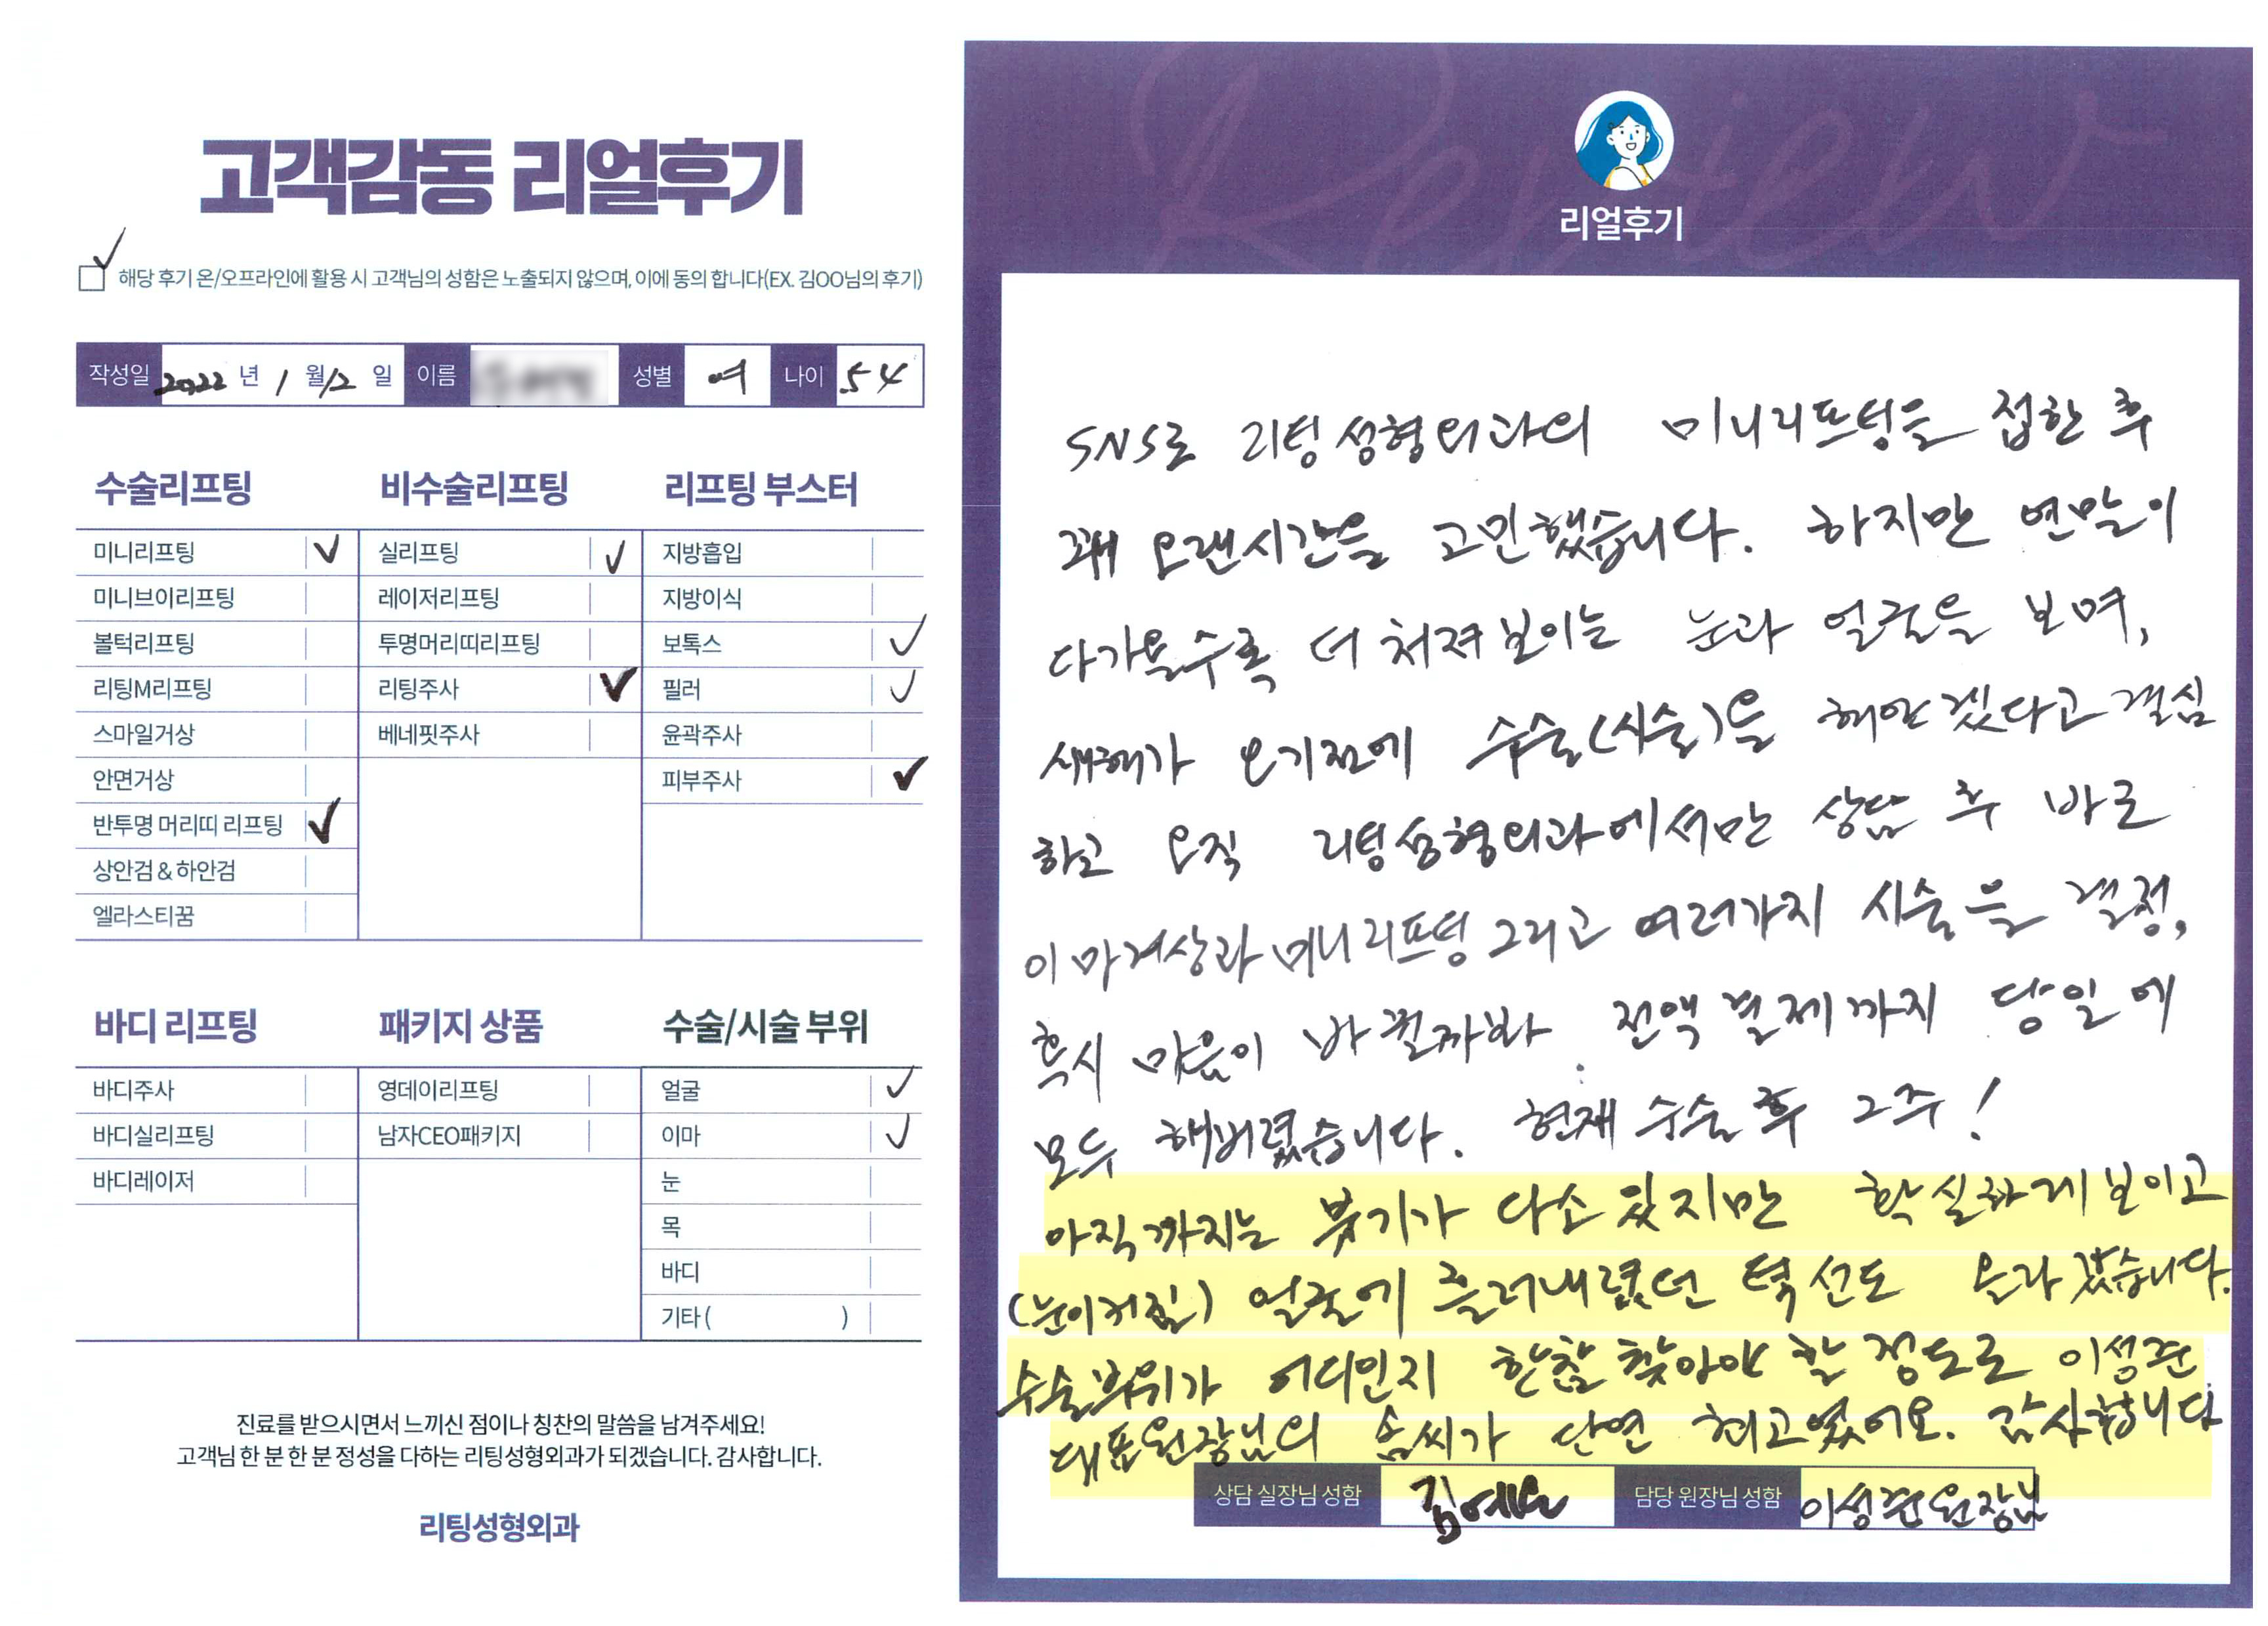 고객감동 리얼후기
✓
□ 해당 후기 온/오프라인에 활용 시 고객님의 성함은 노출되지 않으며, 이에 동의 합니다(EX. 김OO님의 후기)
작성일 2022 년 1 월 12 일 이름 성별 여 나이 54
수술리프팅
미니리프팅 ✓
미니브이리프팅
볼턱리프팅
리팅M리프팅
스마일거상
안면거상
반투명 머리띠 리프팅 ✓
상안검 & 하안검
엘라스티꿈
비수술리프팅
실리프팅 ✓
레이저리프팅
투명머리띠리프팅
리팅주사 ✓
베네핏주사
리프팅 부스터
지방흡입
지방이식
보톡스 ✓
필러 ✓
윤곽주사
피부주사 ✓
바디 리프팅
바디주사
바디실리프팅
바디레이저
패키지 상품
영데이리프팅
남자CEO패키지
수술/시술 부위
얼굴 ✓
이마 ✓
눈
목
바디
기타 ( )
진료를 받으시면서 느끼신 점이나 칭찬의 말씀을 남겨주세요!
고객님 한 분 한 분 정성을 다하는 리팅성형외과가 되겠습니다. 감사합니다.
리팅성형외과
Review
리얼후기
SNS로 리팅성형외과의 미니리프팅을 접한 후
꽤 오랜시간을 고민했습니다. 하지만 연말이
다가올수록 더 처져보이는 눈과 얼굴을 보며,
새해가 오기전에 수술(시술)을 해야겠다고 결심
하고 오직 리팅성형외과에서만 상담 후 바로
이마거상과 미니리프팅 그리고 여러가지 시술을 결정,
혹시 마음이 바뀔까봐 전액 결제까지 당일에
모두 해버렸습니다. 현재 수술 후 2주!
아직까지는 붓기가 다소 있지만 확실하게 보이고
(눈이커짐) 얼굴에 흘러내렸던 턱선도 올라갔습니다.
수술부위가 어디인지 한참 찾아야 할 정도로 이성준
대표원장님의 솜씨가 단연 최고였어요. 감사합니다
상담 실장님 성함 김예 담당 원장님 성함 이성준 원장님